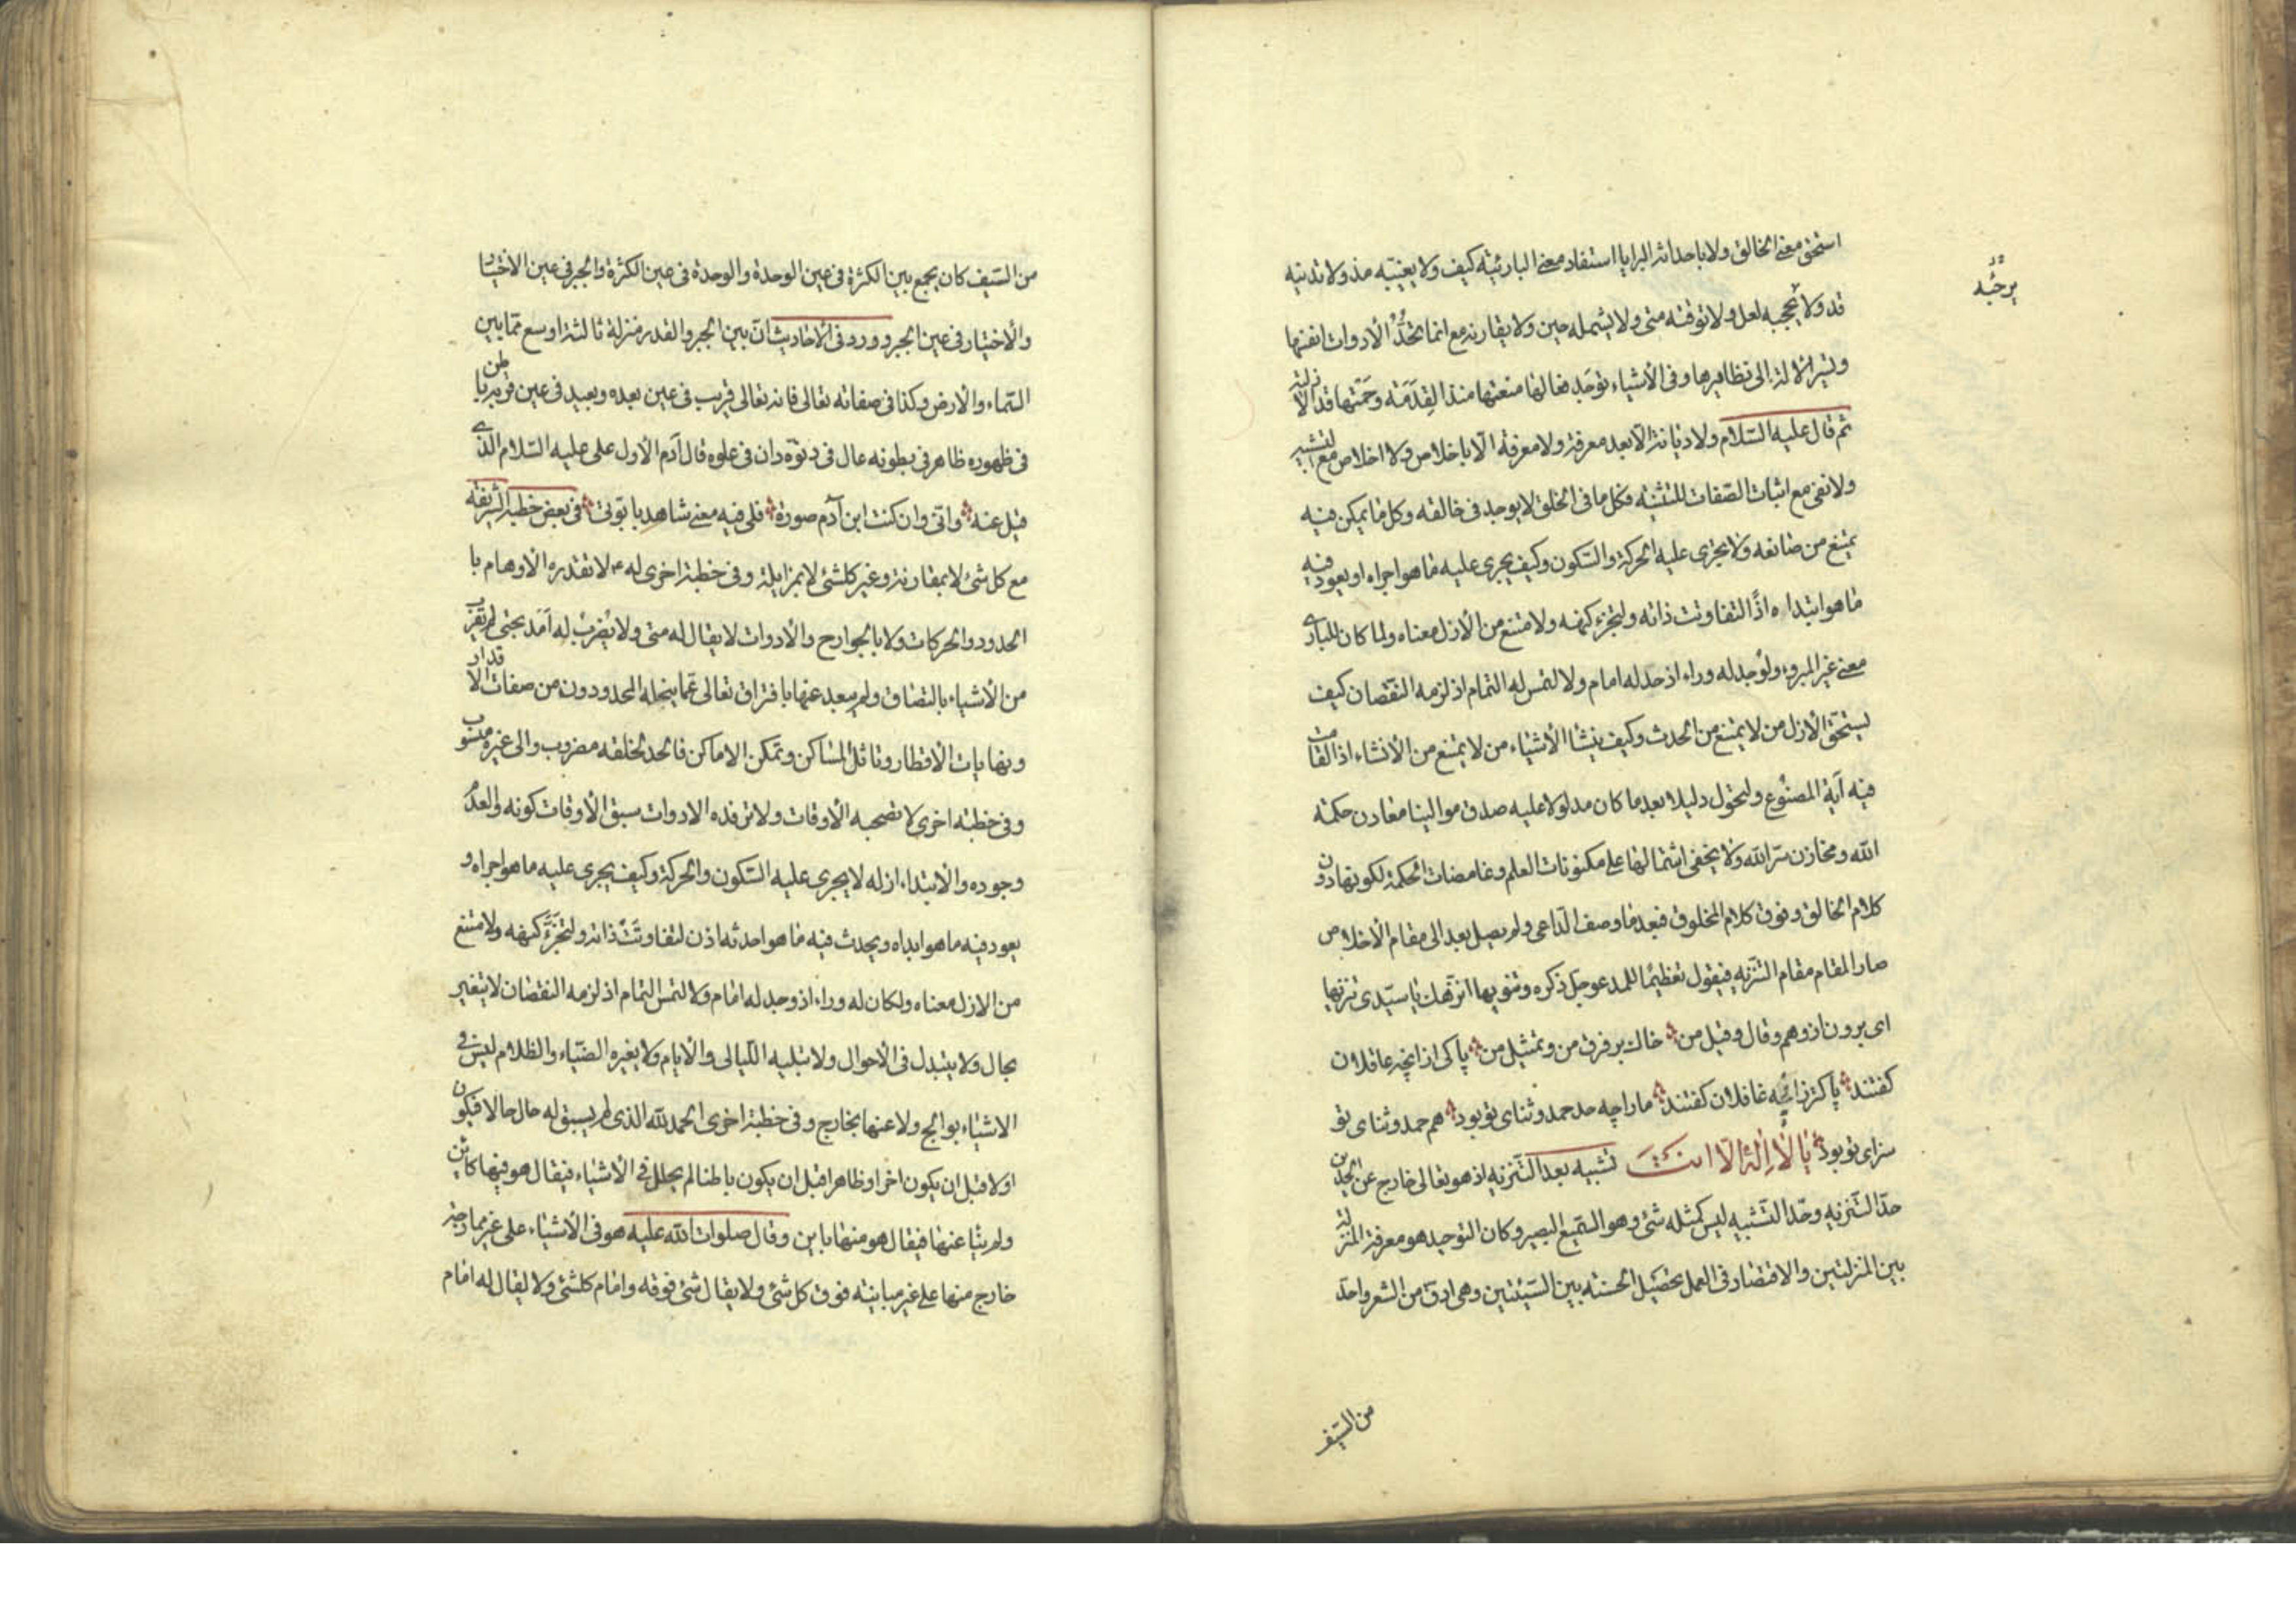 استحق معنى الخالق ولا باحداثه البرايا استفاد معنى البارئية كيف ولا يغيبه مذ ولا تدنيه
قد ولا يحجبه لعل ولا توقته متى ولا يشمله حين ولا يقارنه مع انما تحدّ الأدوات انفسها
وتشير الآلة الى نظايرها وفى الأشياء توجد فعالها منعتها منذ القدمة وحمتها قد الأزلية
ثم قال عليه السّلام ولا ديانة الّا بعد معرفة ولا معرفة الّا باخلاص ولا اخلاص مع التشبيه
ولا نفى مع اثبات الصّفات للتثنيه فكل ما فى الخلق لا يوجد فى خالقه وكل ما يمكن فيه
يمتنع من صانعه ولا يجرى عليه الحركة والسّكون وكيف يجرى عليه ما هو اجراه او يعود فيه
ما هو ابتداه اذًا لتفاوتت ذاته ولتجزء كنهه ولامتنع من الأزل معناه ولما كان للبارى
معنى غير المبروء ولو حد له وراء اذ حد له امام ولا لتمس له التمام اذ لزمه النقصان كيف
يستحق الأزل من لا يمتنع من الحدث وكيف ينشأ الأشياء من لا يمتنع من الأنشاء اذا لقامت
فيه آية المصنوع ولتحوّل دليلا بعد ما كان مدلولا عليه صدق موالينا معادن حكمة
الله ومخازن سرّ الله ولا يخفى اشتمالها على مكنونات العلم وغامضات الحكمة لكونها دون
كلام الخالق وفوق كلام المخلوق فبعد ما وصف الدّاعى ولم يصل بعد الى مقام الأخلاص
صار المقام مقام التنزيه فيقول تعظيمًا للمدعو جل ذكره وتنويها انزّهك يا سيّدى تنزيها
اى برون از وهم وقال وقيل من خاك بر فرق من وتمثيل من پاكى از آنچه عاقلان
گفتند پاكتر زانچه غافلان گفتند ما را چه حد حمد وثناى تو بود هم حمد وثناى تو
سزاى تو بود يا لا اله الّا انت تشبيه بعد التّنزيه اذ هو تعالى خارج عن الحدّين
حدّ التّنزيه وحدّ التّشبيه ليس كمثله شئ وهو السّميع البصير وكان التوحيد هو معرفة المنزلة
بين المنزلتين والاقتصاد فى العمل تحصيل الحسنة بين السّيئتين وهى ادق من الشعر واحدّ
من السّيف
من السّيف كان يجمع بين الكثرة فى عين الوحدة والوحدة فى عين الكثرة والجبر فى عين الاختيار
والأختيار فى عين الجبر وورد فى الأحاديث انّ بين الجبر والقدر منزلة ثالثة اوسع ممّا بين
السّماء والأرض وكذا فى صفاته تعالى فانه تعالى قريب فى عين بعده وبعيد فى عين قربه باطن
فى ظهوره ظاهر فى بطونه عال فى دنوّه دان فى علوه قال آدم الأول على عليه السّلام الذى
قيل عنه وانّى وان كنت ابن آدم صورة فلى فيه معنى شاهد بابوتى فى بعض خطبه الشريفة
مع كل شئ لا بمقارنة وغير كلشئ لا بمزايلة وفى خطبة اخرى له ع لا تقدره الأوهام با
الحدود والحركات ولا بالجوارح والأدوات لا يقال له متى ولا يضرب له امد بحتى لم يقرب
من الأشياء بالتصاق ولم يبعد عنها بافتراق تعالى عمّا ينحله المحددون من صفات الاقدار
ونهايات الأقطار وتاثل المساكن وتمكن الاماكن فالحد لخلقه مضروب والى غيره منسوب
وفى خطبة اخرى لا تصحبه الأوقات ولا ترفده الادوات سبق الأوقات كونه والعدم
وجوده والأبتداء ازله لا يجرى عليه السّكون والحركة وكيف يجرى عليه ما هو اجراه و
يعود فيه ما هو ابداه ويحدث فيه ما هو احدثه اذن لتفاوتت ذاته ولتجزّء كنهه ولامتنع
من الازل معناه ولكان له وراء اذ وجد له امام ولا لتمس التمام اذ لزمه النقصان لا يتغير
بحال ولا يتبدل فى الأحوال ولا تبليه اللّيالى والأيام ولا يغيره الضّياء والظلام ليس فى
الاشياء بوالج ولا عنها بخارج وفى خطبة اخرى الحمد لله الذى لم يسبق له حال حالا فيكون
اولا قبل ان يكون اخرا وظاهرا قبل ان يكون باطنا لم يحلل فى الأشياء فيقال هو فيها كاين
ولم ينا عنها فيقال هو منها باين وقال صلوات الله عليه هو فى الأشياء على غير ممازجة
خارج منها على غير مباينة فوق كل شئ ولا يقال شئ فوقه وامام كلشئ ولا يقال له امام